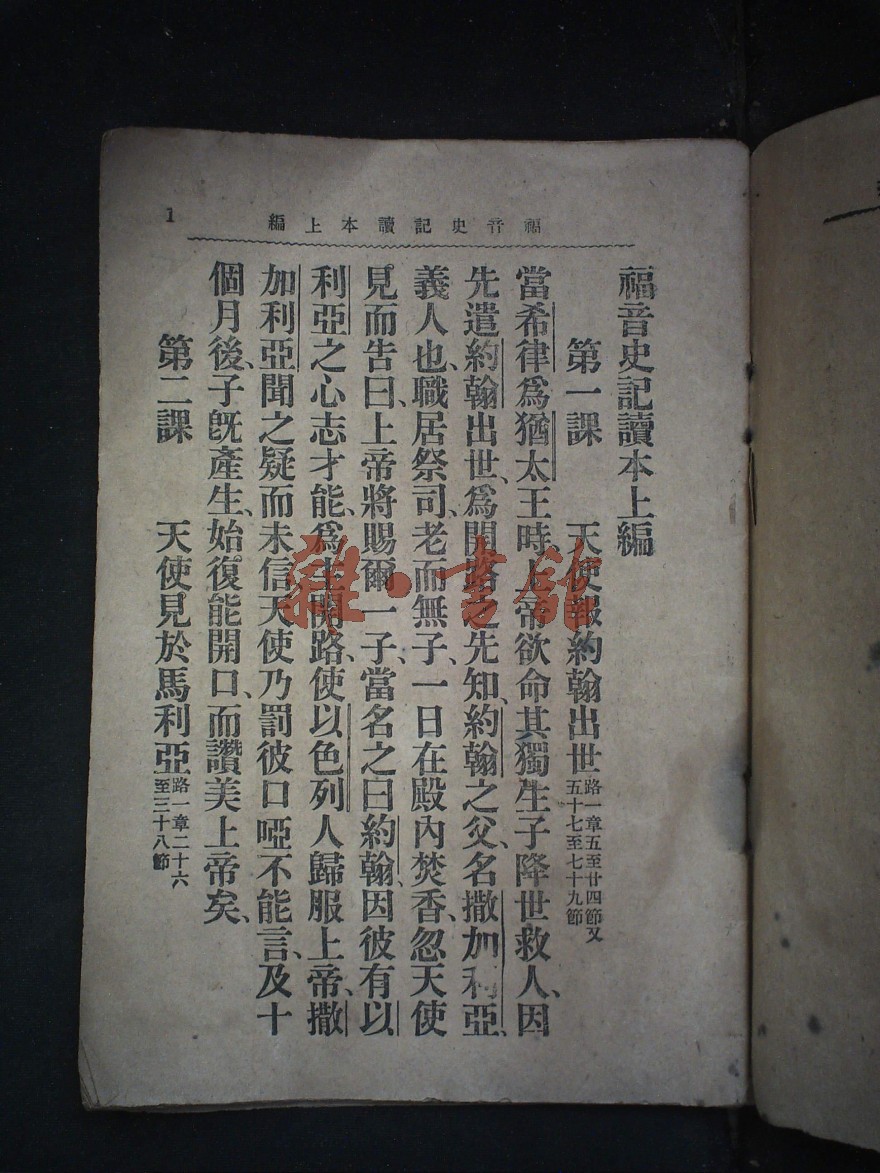 福音史記讀本上編
1
福音史記讀本上編
第一課　天使報約翰出世路一章五至廿四節又五十七至七十九節
當希律爲猶太王時上帝欲命其獨生子降世救人、因
先遣約翰出世、爲開路之先知、約翰之父、名撒加利亞、
義人也、職居祭司、老而無子、一日在殿內焚香、忽天使
見而告曰、上帝將賜爾一子、當名之曰約翰、因彼有以
利亞之心志才能、爲主開路、使以色列人歸服上帝、撒
加利亞聞之疑而未信、天使乃罰彼口啞不能言、及十
個月後、子旣產生、始復能開口、而讚美上帝矣、
第二課　天使見於馬利亞路一章二十六至三十八節
雜·書館